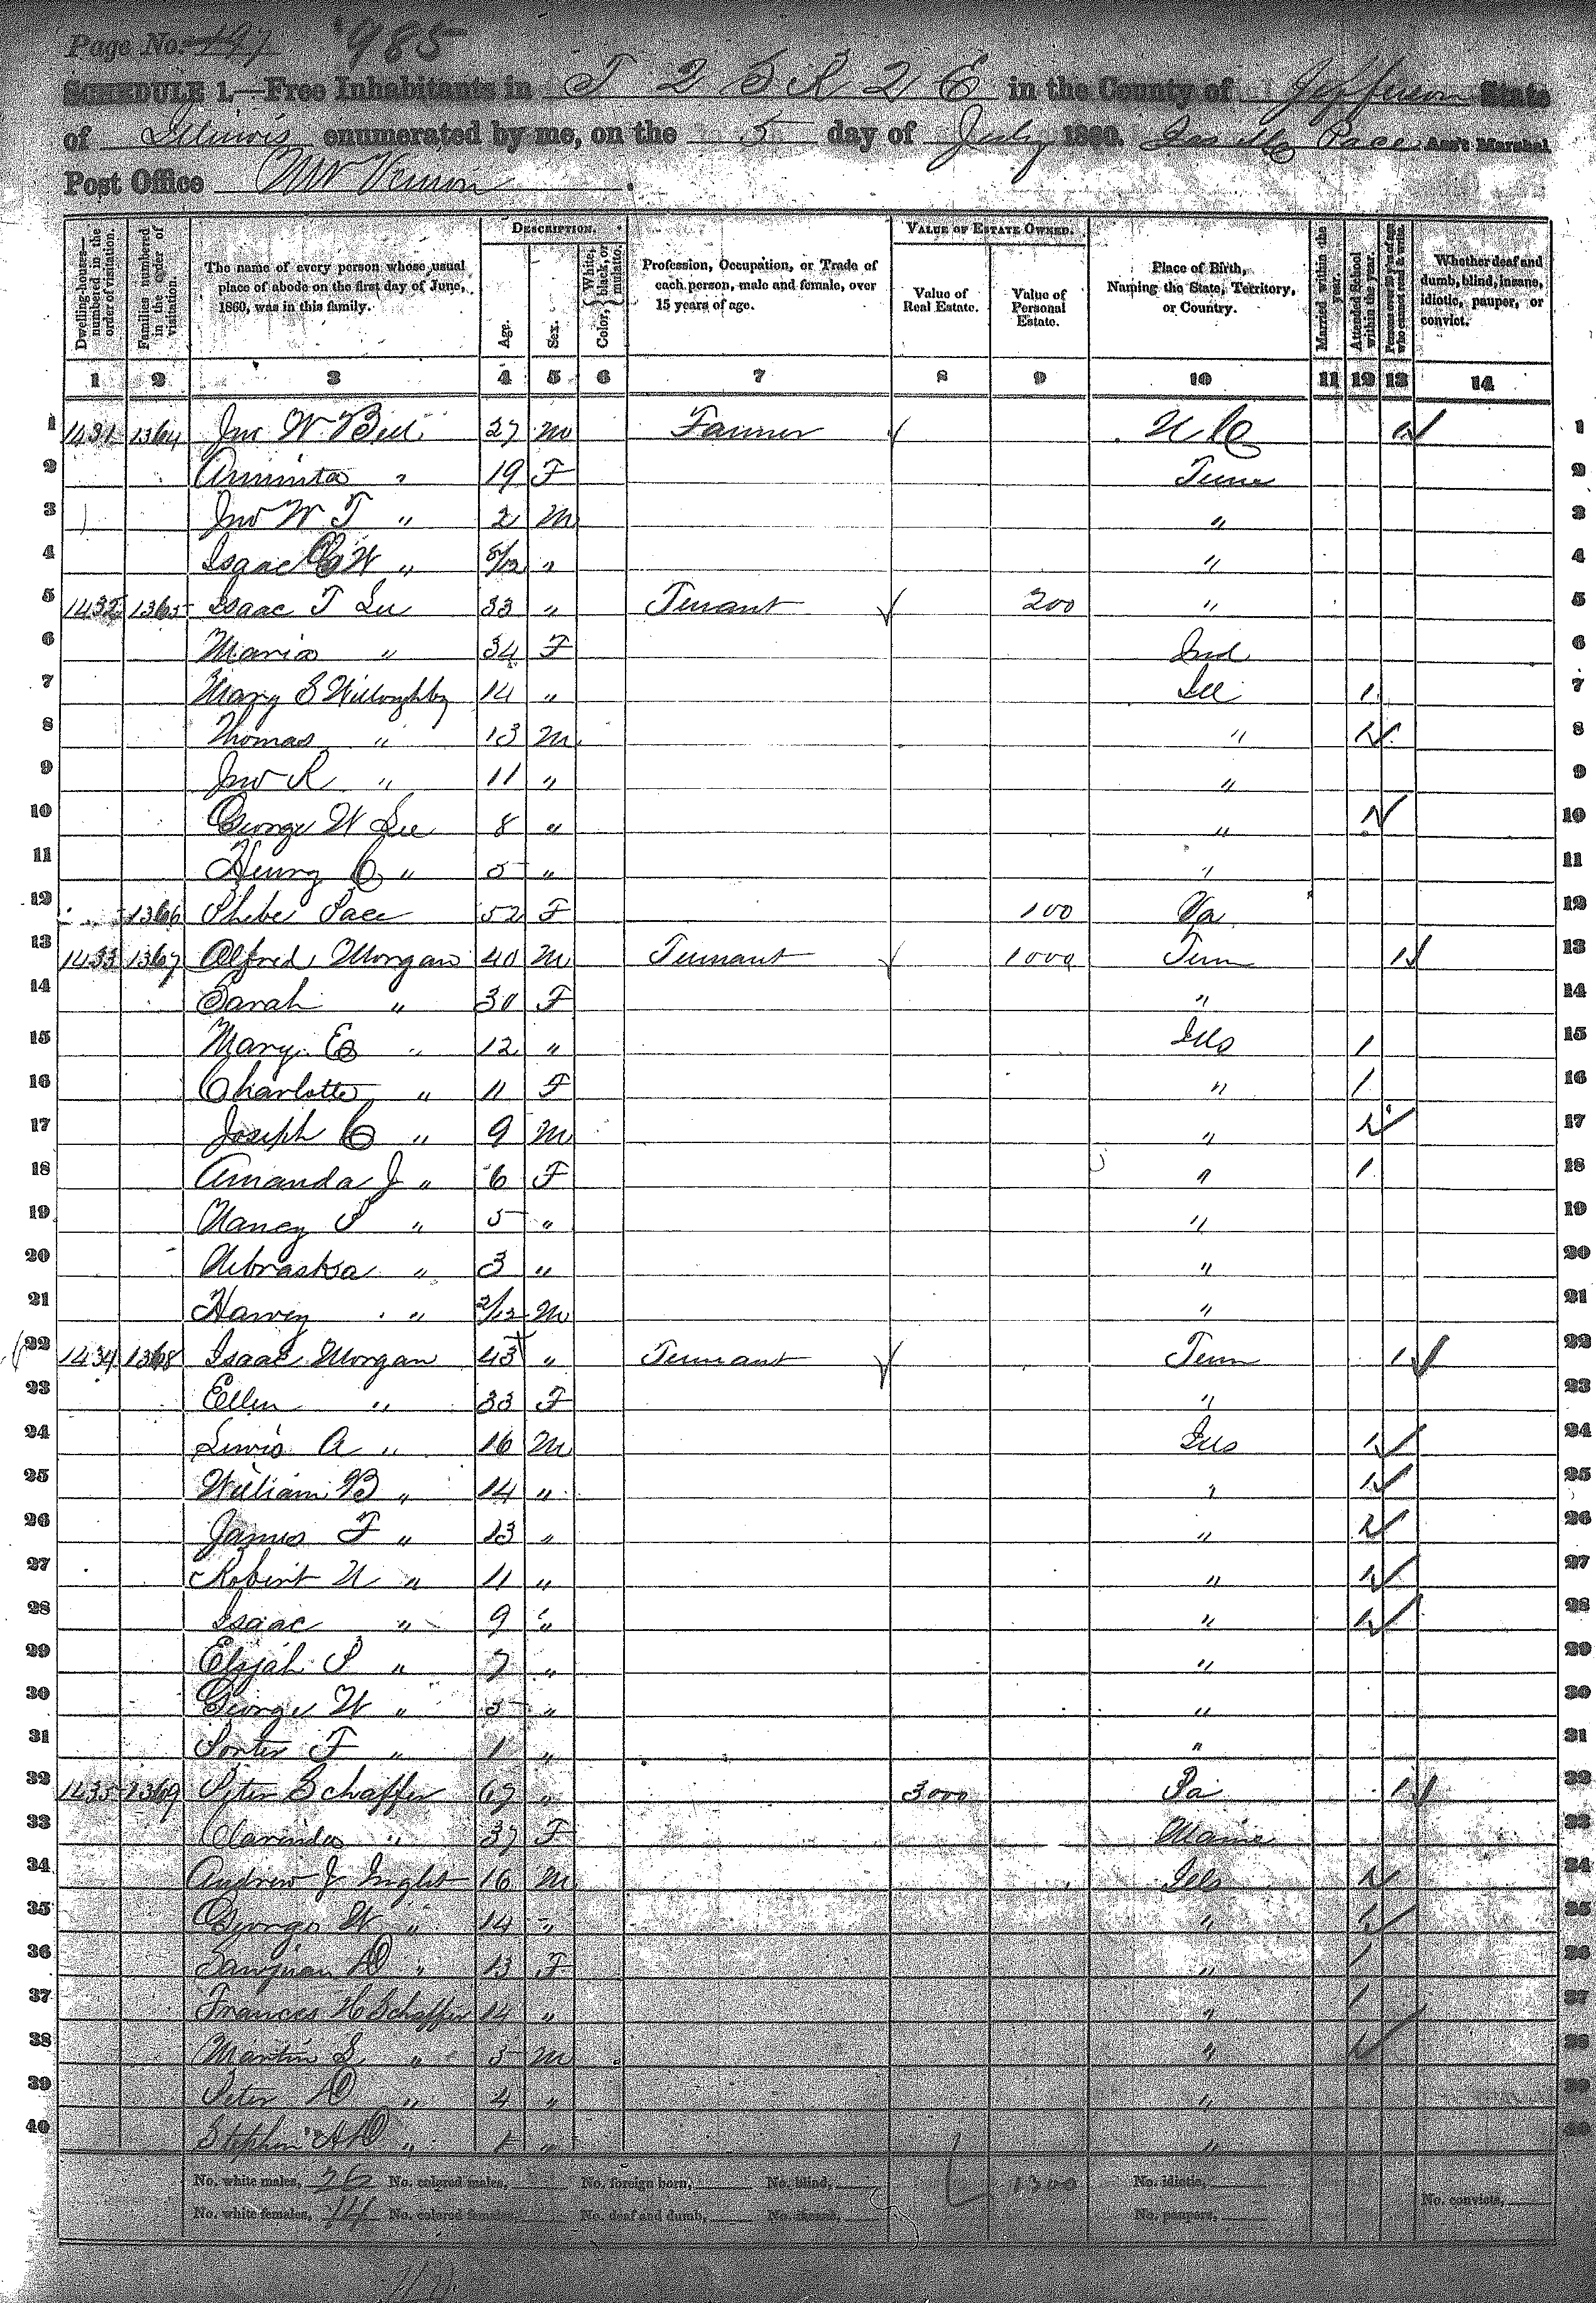 Page No. 197 985
SCHEDULE 1.—Free Inhabitants in T 2 S R 2 E in the County of Jefferson State
of Illinois enumerated by me, on the 5 day of July 1860. Pace Ass't Marshal
Post Office Mt Vernon.
DESCRIPTION. VALUE OF ESTATE OWNED.
Dwelling-houses—numbered in the order of visitation. Families numbered in the order of visitation. The name of every person whose usual place of abode on the first day of June, 1860, was in this family. Age. Sex. Color, White, black, or mulatto. Profession, Occupation, or Trade of each person, male and female, over 15 years of age. Value of Real Estate. Value of Personal Estate. Place of Birth, Naming the State, Territory, or Country. Married within the year. Attended School within the year. Persons over 20 y'rs of age who cannot read & write. Whether deaf and dumb, blind, insane, idiotic, pauper, or convict.
1 2 3 4 5 6 7 8 9 10 11 12 13 14
1 1431 1364 Jno W Bell 27 M Farmer N C 1 1
2 Arminta " 19 F Tenn 2
3 Jno W T " 2 M " 3
4 Isaac C W " 5/12 " " 4
5 1432 1365 Isaac T Lee 33 " Tenant 200 " 5
6 Maria " 34 F Ind 6
7 Mary E Willoughby 14 " Ill 1 7
8 Thomas " 13 M " 1 8
9 Jno R " 11 " " 9
10 George W Lee 8 " " 1 10
11 Henry C " 5 " " 11
12 1366 Phebe Pace 52 F 100 Va 12
13 1433 1367 Alfred Morgan 40 M Tennant 1000 Tenn 1 13
14 Sarah " 30 F " 14
15 Mary E " 12 " Ills 1 15
16 Charlotte " 11 F " 1 16
17 Joseph C " 9 M " 1 17
18 Amanda J " 6 F " 1 18
19 Nancy P " 5 " " 19
20 Nebraska " 3 " " 20
21 Harvey " 2/12 M " 21
22 1434 1368 Isaac Morgan 43 " Tennant Tenn 1 22
23 Ellen " 33 F " 23
24 Lewis A " 16 M Ills 1 24
25 William B " 14 " " 1 25
26 James F " 13 " " 1 26
27 Robert N " 11 " " 1 27
28 Isaac " 9 " " 1 28
29 Elijah P " 7 " " 29
30 George W " 5 " " 30
31 Porter F " 1 " " 31
32 1435 1369 Peter Schaffer 67 " 3000 Pa 1 32
33 Clarinda " 37 F Maine 33
34 Andrew J 16 M Ills 1 34
35 George W " 14 " " 1 35
36 D " 13 F " 1 36
37 Frances H Schaffer 14 " " 1 37
38 Martin L " 5 M " 1 38
39 Peter D " 4 " " 39
40 Stephen A D " 1 " " 40
No. white males, 26 No. colored males, No. foreign born, No. blind, 1300 No. idiotic,
No. white females, 14 No. colored females, No. deaf and dumb, No. insane, No. paupers, No. convicts,